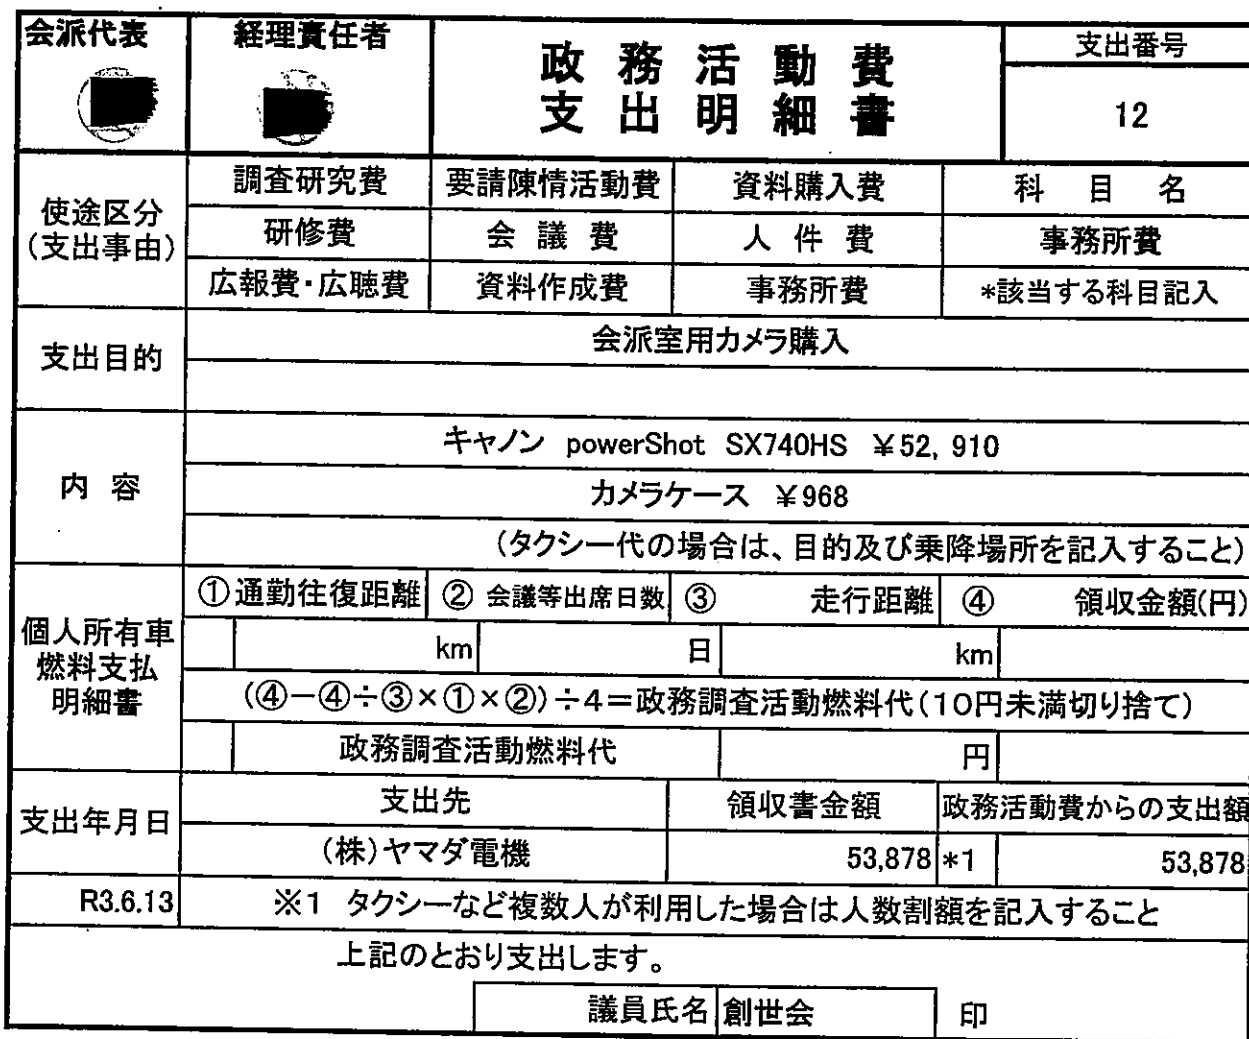 会派代表
経理責任者
政務活動費
支出明細書
支出番号
12
使途区分
(支出事由)
調査研究費
要請陳情活動費
資料購入費
科目名
研修費
会議費
人件費
事務所費
広報費・広聴費
資料作成費
事務所費
*該当する科目記入
支出目的
会派室用カメラ購入
内容
キャノン powerShot SX740HS ¥52,910
カメラケース ¥968
(タクシー代の場合は、目的及び乗降場所を記入すること)
個人所有車
燃料支払
明細書
①通勤往復距離
②会議等出席日数
③走行距離
④領収金額(円)
km
日
km
(④-④÷③×①×②)÷4=政務調査活動燃料代(10円未満切り捨て)
政務調査活動燃料代
円
支出年月日
支出先
領収書金額
政務活動費からの支出額
(株)ヤマダ電機
53,878
*1
53,878
R3.6.13
※1 タクシーなど複数人が利用した場合は人数割額を記入すること
上記のとおり支出します。
議員氏名
創世会
印